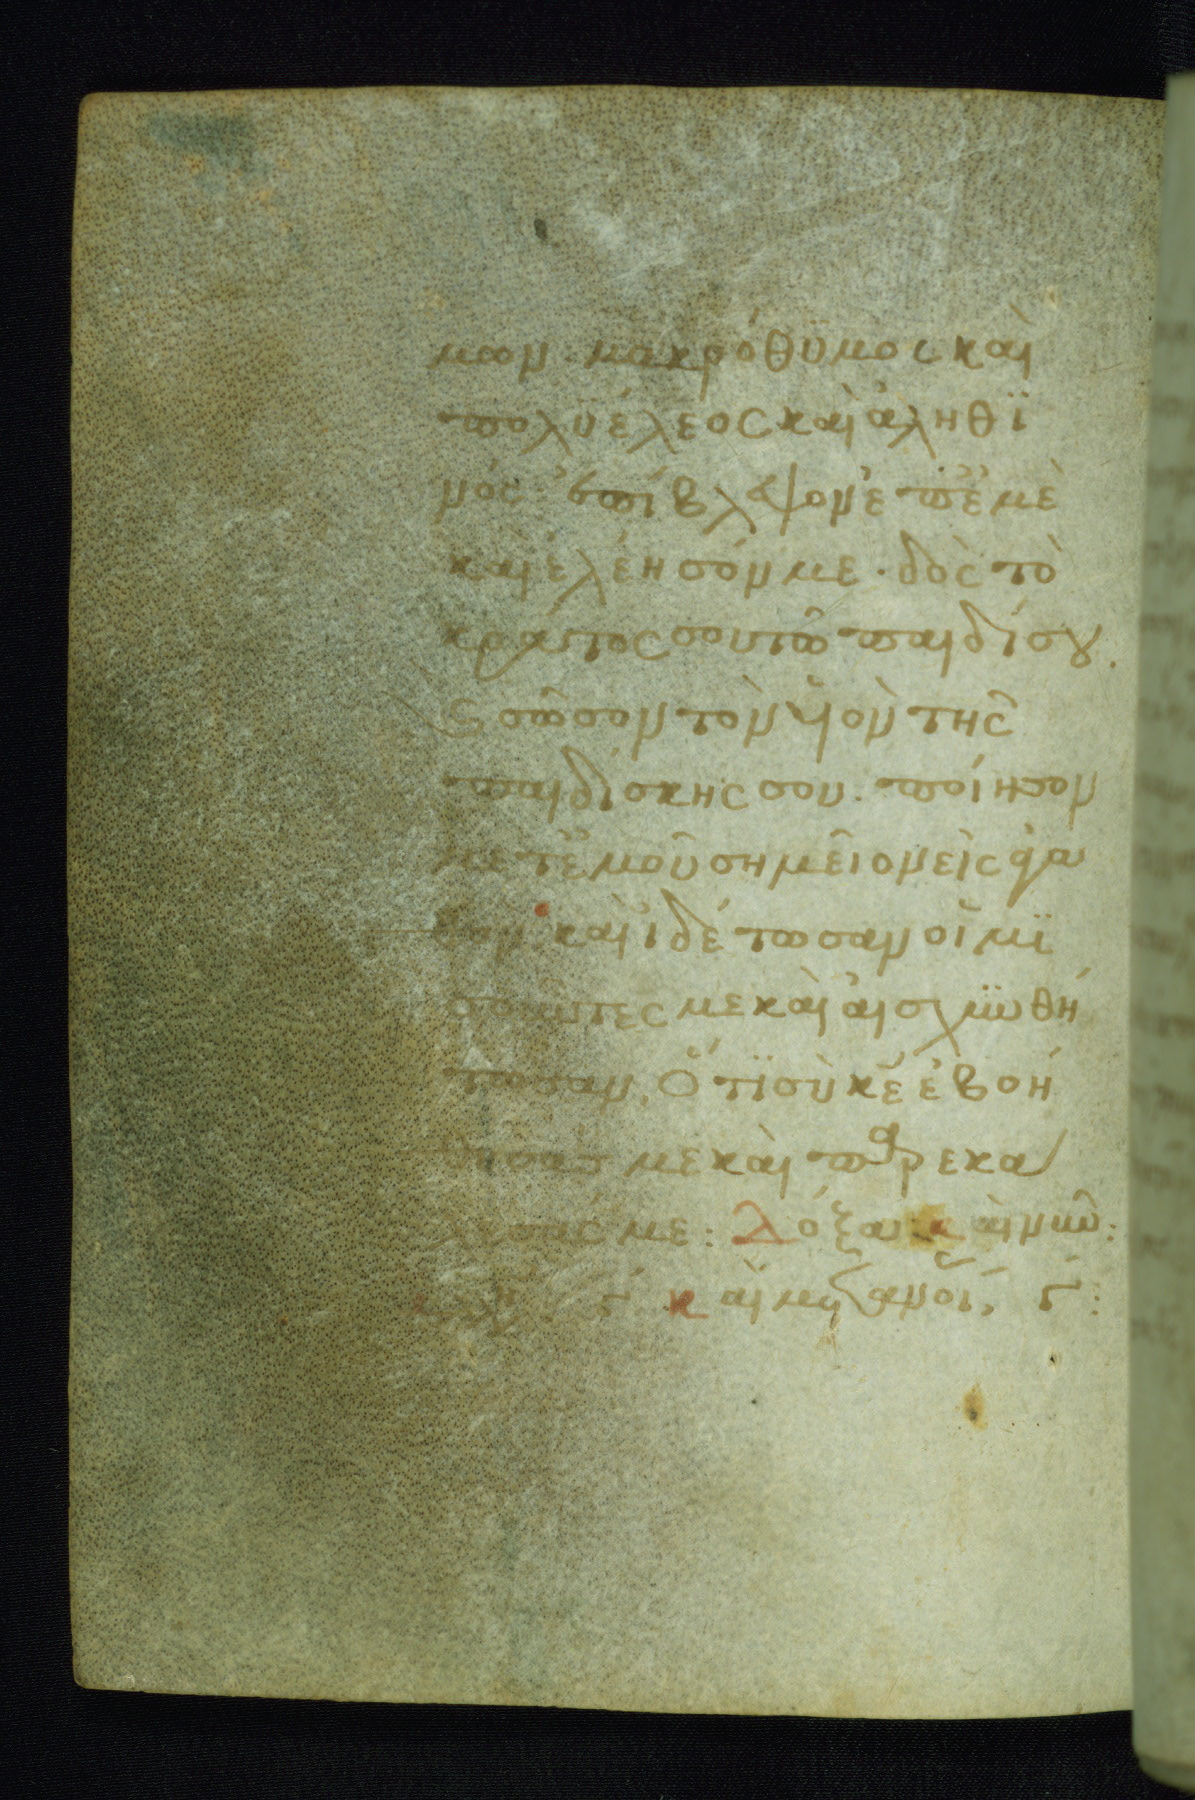 μων· μακρόθϋμος καὶ
πολϋέλεος καὶ ἀληθϊ
νός· ἐπίβλεψον ἐπ ἐμὲ
καὶ ἐλέησόν με· δὸς τὸ
κράτος σου τῶ παιδί σου.
ϗ σῶσον τὸν ϋἱὸν τῆς
παιδίσκης σου· ποίησον
μετ ἐμοῦ σημεῖον εἰς ἀγα
θόν· καὶ ἰδέτωσαν οἱ μϊ
σοῦντες με καὶ αἰσχϋνθή
τωσαν. Ὅτϊ σὺ κε ἐβοή
θησάς με καὶ παρεκα
λεσάς με: Δόξα: καὶ νῦν:
γ καὶ μη γ: